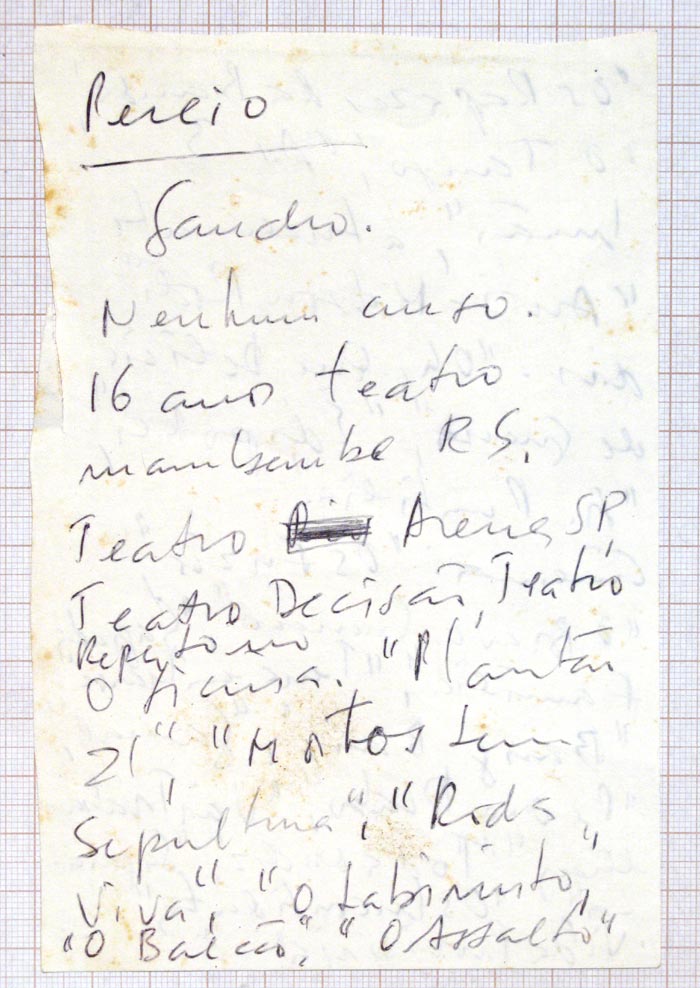 Pereio
Gaucho.
Nenhum curso.
16 anos teatro
mambembe RS.
Teatro Arena SP,
Teatro Decisão, Teatro
Repertorio
Oficina. "Plantão
21", "Mortos sem
Sepultura", "Roda
Viva", "O Labirinto",
"O Balcão", "O Assalto"